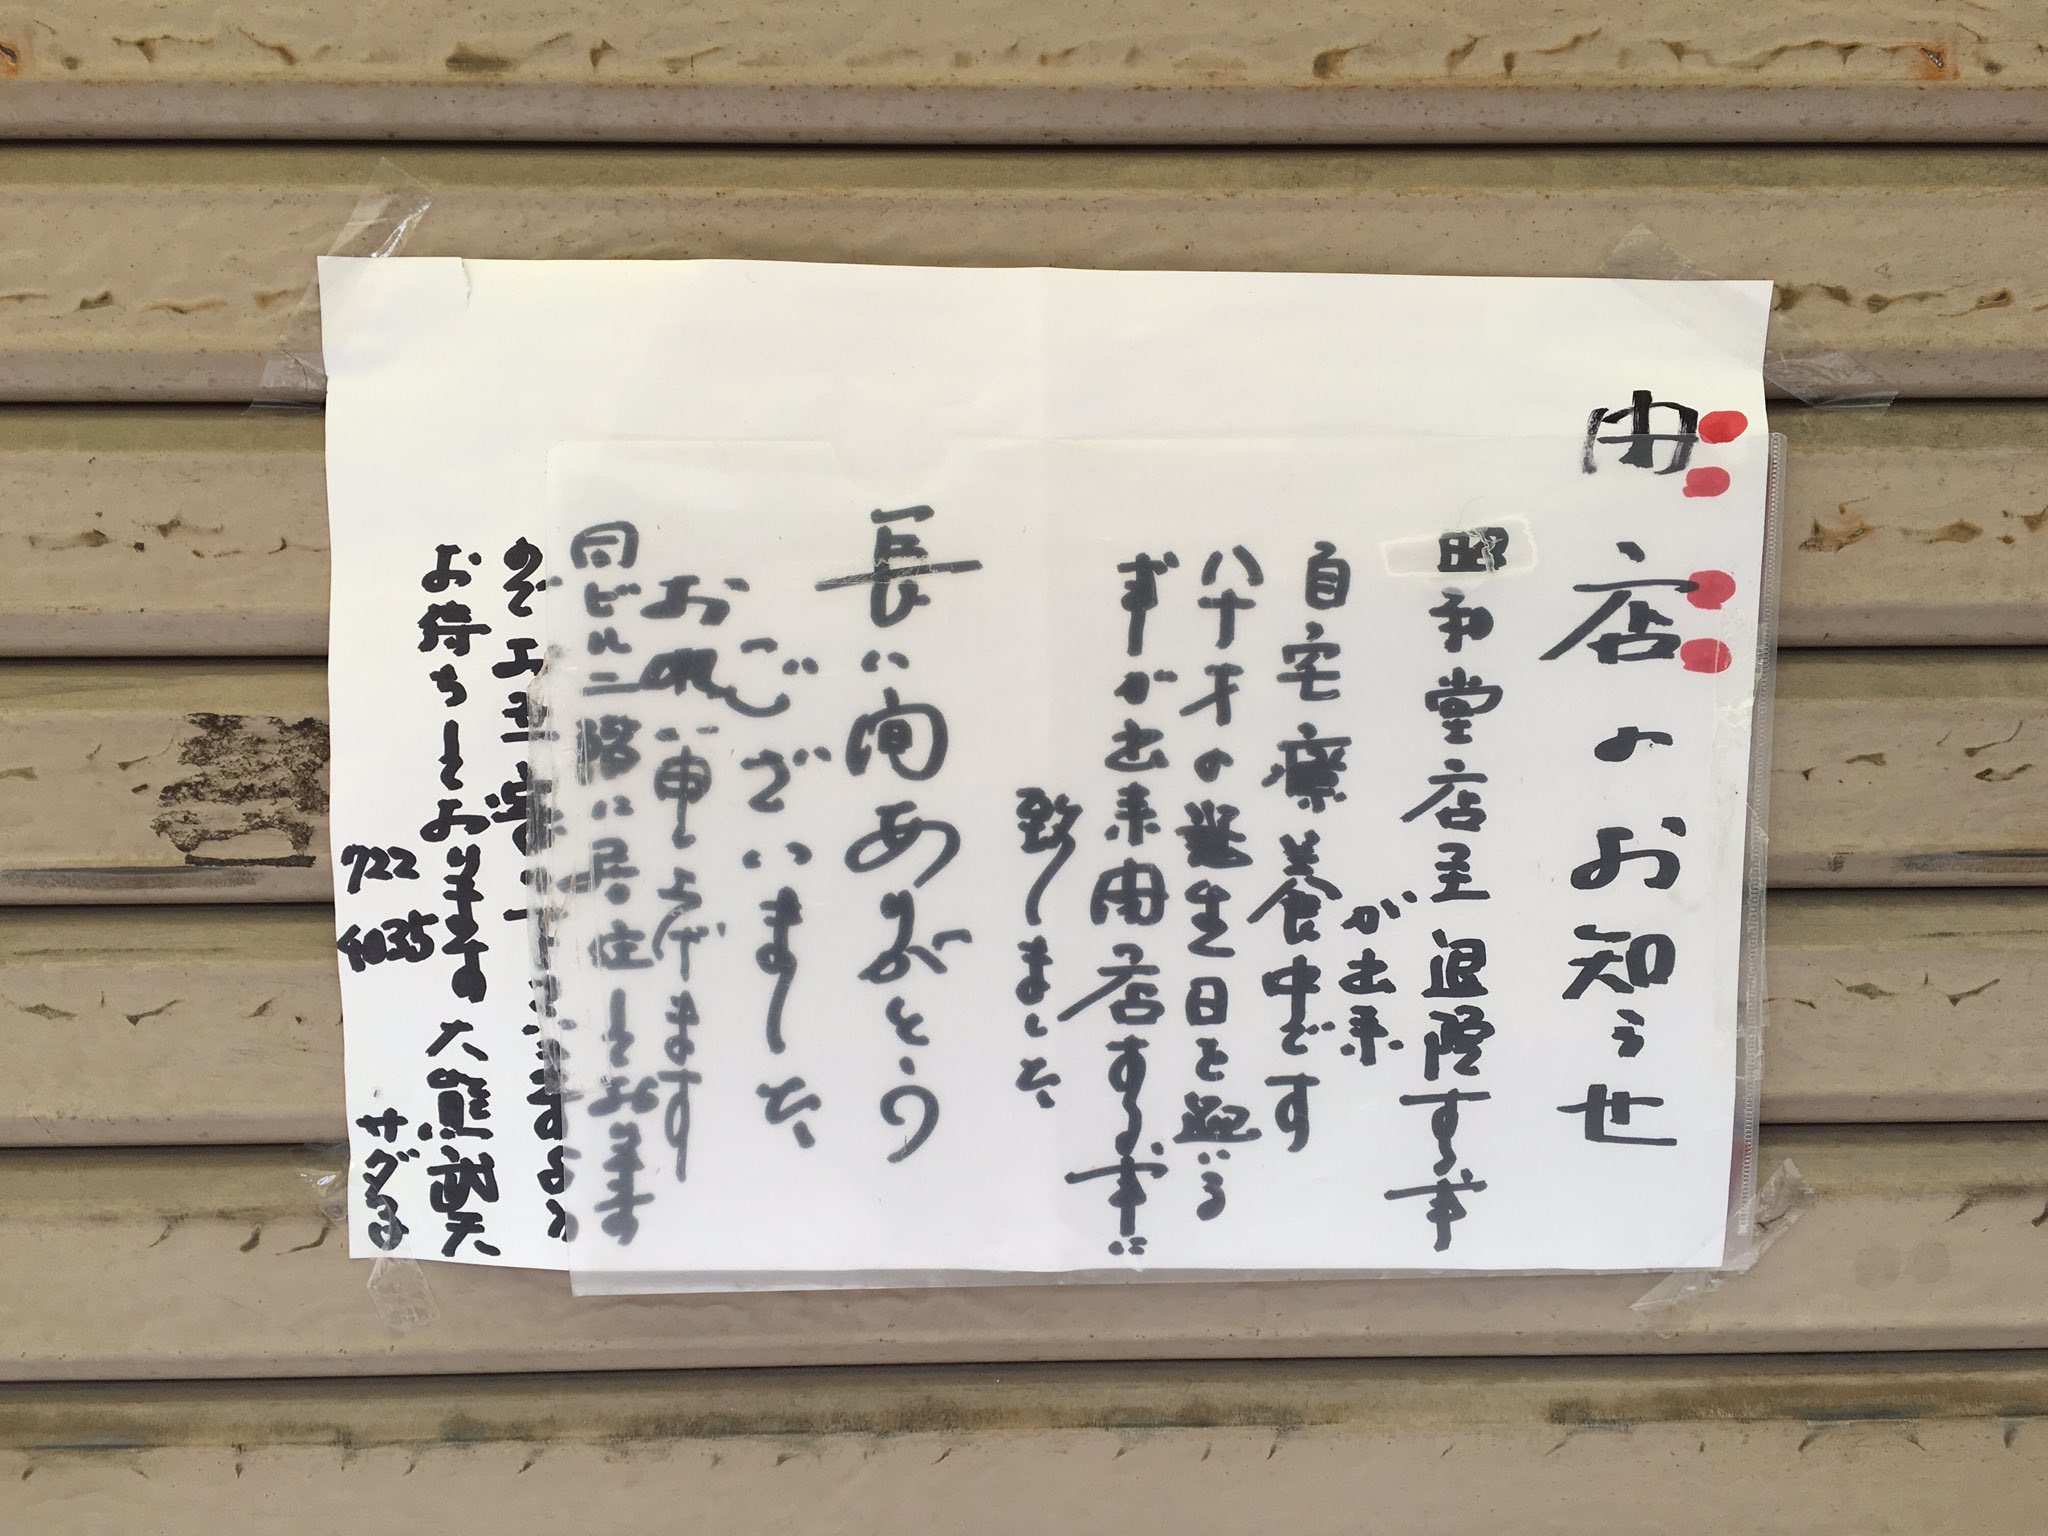 閉店のお知らせ
昭和堂店主退院する事
が出来
自宅療養中です
八十才の誕生日を迎いる
事が出来閉店する事に
致しました
長い間ありがとう
ございました
お願い申し上げます
同ビル二階に居住しており
お待ちしております 大熊
722
サダ子